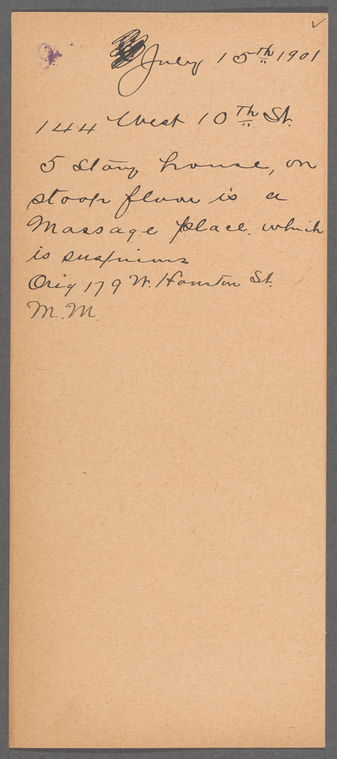 July 15th 1901
144 West 10th St.
5 story house, on
stoop floor is a
Massage place. which
is suspicious
Orig 179 W. Houston St.
M.M.